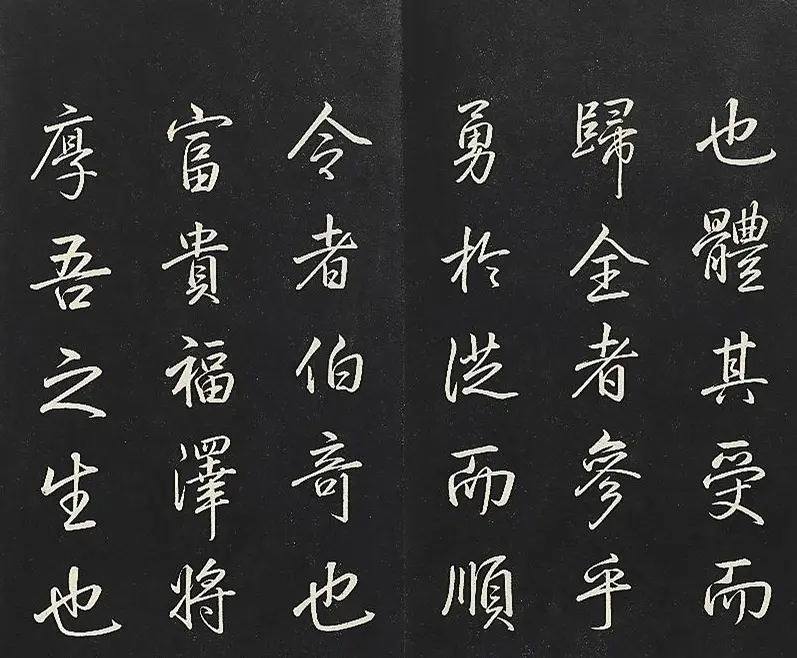 也體其受而
歸全者參乎
勇於從而順
令者伯奇也
富貴福澤將
厚吾之生也